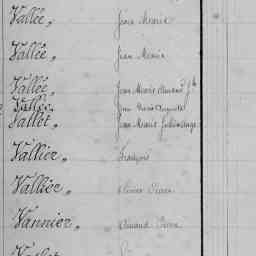 Vallée, Jean Marie
Vallée, Jean Marie
Vallée, Jean Marie Armand
Vallée, Jean Marie Auguste
Vallet, Jean Marie
Vallier, François
Vallier, Pierre
Vannier, Armand Pierre